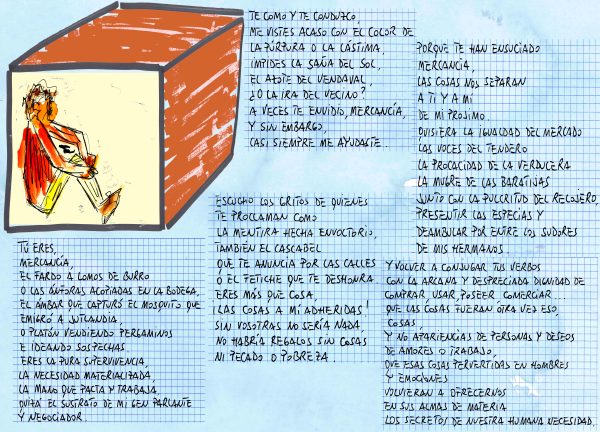 TÚ ERES,
MERCANCÍA,
EL FARDO A LOMOS DE BURRO
O LAS ÁNFORAS ACOPIADAS EN LA BODEGA,
EL ÁMBAR QUE CAPTURÓ EL MOSQUITO QUE
EMIGRÓ A JUTLANDIA,
O PLATÓN VENDIENDO PERGAMINOS
E IDEANDO SOSPECHAS
ERES LA PURA SUPERVIVENCIA,
LA NECESIDAD MATERIALIZADA,
LA MANO QUE PACTA Y TRABAJA,
QUIZÁ EL SUSTRATO DE MI GEN PARLANTE
Y NEGOCIADOR.
TE COMO Y TE CONDUZCO,
ME VISTES ACASO CON EL COLOR DE
LA PÚRPURA O LA LÁSTIMA,
IMPIDES LA SAÑA DEL SOL,
EL AZOTE DEL VENDAVAL,
¿O LA IRA DEL VECINO?
A VECES TE ENVIDIO, MERCANCÍA,
Y SIN EMBARGO,
CASI SIEMPRE ME AYUDASTE.
ESCUCHO LOS GRITOS DE QUIENES
TE PROCLAMAN COMO
LA MENTIRA HECHA ENVOLTORIO,
TAMBIÉN EL CASCABEL
QUE TE ANUNCIA POR LAS CALLES
O EL FETICHE QUE TE DESHONRA.
ERES MÁS QUE COSA,
¡LAS COSAS A MÍ ADHERIDAS!
SIN VOSOTRAS NO SERÍA NADA,
NO HABRÍA REGALOS SIN COSAS
NI PECADO O POBREZA
PORQUE TE HAN ENSUCIADO
MERCANCÍA,
LAS COSAS NOS SEPARAN
A TI Y A MÍ
DE MI PRÓJIMO.
QUISIERA LA IGUALDAD DEL MERCADO
LAS VOCES DEL TENDERO
LA PROCACIDAD DE LA VERDULERA
LA MUGRE DE LAS BARATIJAS
JUNTO CON LA PULCRITUD DEL RELOJERO,
PRESENTIR LAS ESPECIAS Y
DEAMBULAR POR ENTRE LOS SUDORES
DE MIS HERMANOS.
Y VOLVER A CONJUGAR TUS VERBOS
CON LA ARCANA Y DESPRECIADA DIGNIDAD DE
COMPRAR, USAR, POSEER COMERCIAR...
QUE LAS COSAS FUERAN OTRA VEZ ESO,
COSAS
Y NO APARIENCIAS DE PERSONAS Y DESEOS
DE AMORES O TRABAJO,
QUE ESAS COSAS PERVERTIDAS EN HOMBRES
Y EMOCIONES
VOLVIERAN A OFRECERNOS
EN SUS ALMAS DE MATERIA
LOS SECRETOS DE NUESTRA HUMANA NECESIDAD.